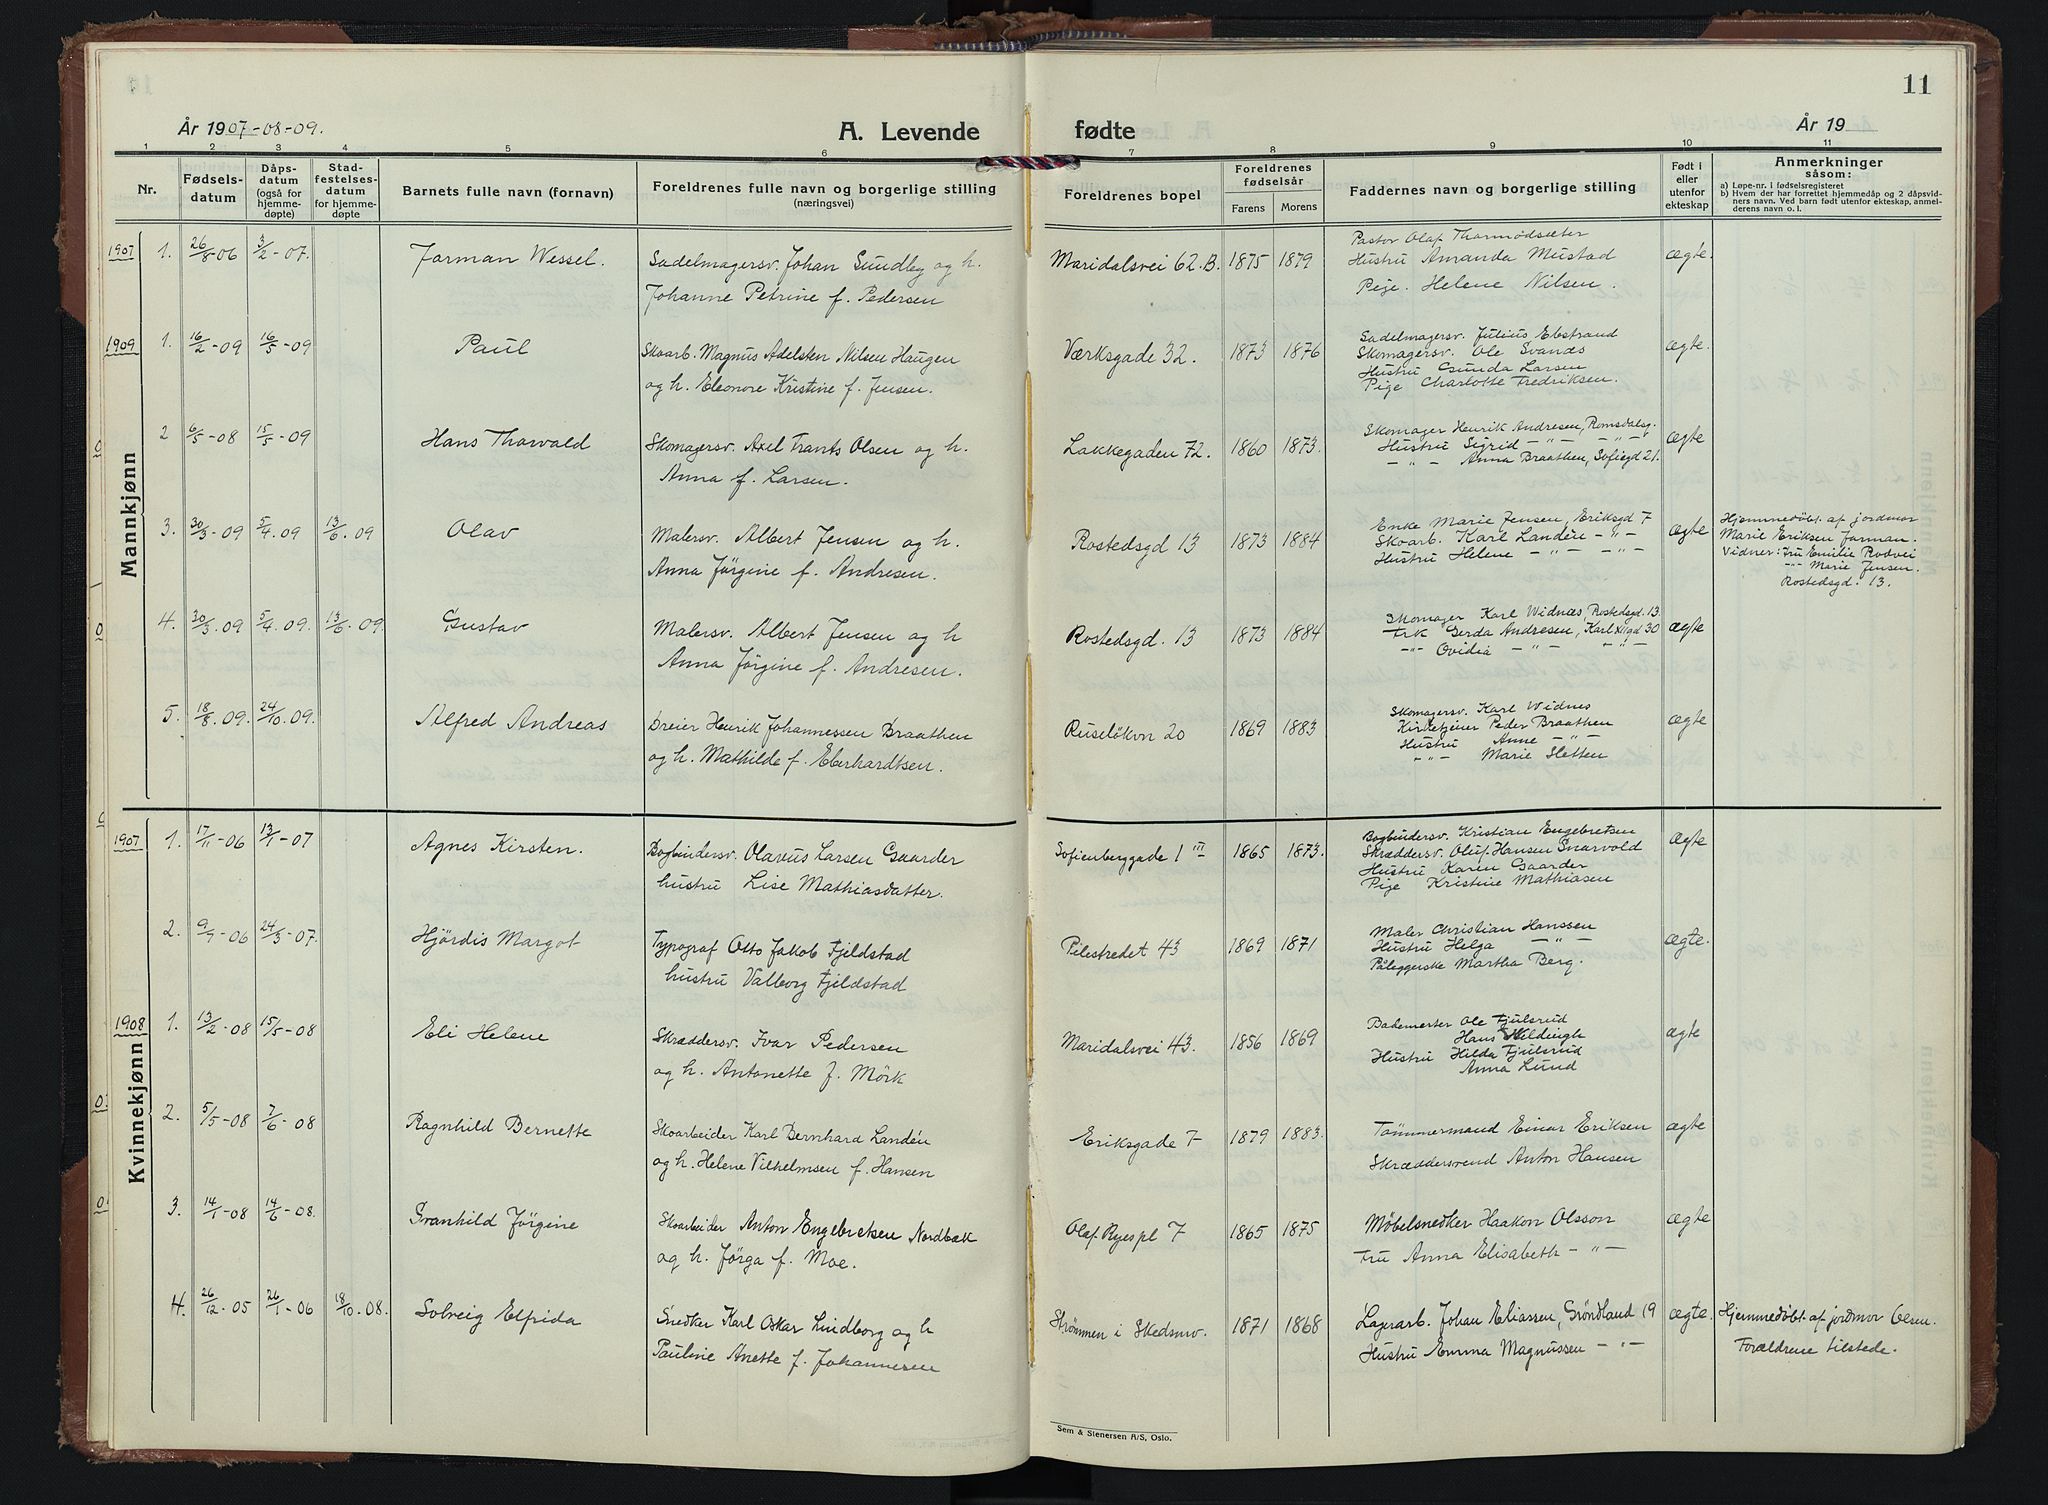 11
År 1907-08-09.
A. Levende fødte
År 19
1 2 3 4 5 6 7 8 9 10 11
Nr.
Fødsels-
datum
Dåps-
datum
(også for
hjemme-
døpte)
Stad-
festelses-
datum
for hjemme-
døpte
Barnets fulle navn (fornavn)
Foreldrenes fulle navn og borgerlige stilling
(næringsvei)
Foreldrenes bopel
Foreldrenes
fødselsår
Farens Morens
Faddernes navn og borgerlige stilling
Født i
eller
utenfor
ekteskap
Anmerkninger
såsom:
a) Løpe-nr. i fødselsregisteret
b) Hvem der har forrettet hjemmedåp og 2 dåpsvid-
ners navn. Ved barn født utenfor ekteskap, anmel-
derens navn o. l.
Mannkjønn
1907 1. 26/8-06 3/2-07. Jarman Wessel.
Sadelmagersv. Johan Sundby og h.
Johanne Petrine f. Pedersen
Maridalsvei 62.B. 1875 1879
Pastor Olaf Thormodsæter
Hustru Amanda Mustad
Pige. Helene Nilsen.
ægte.
1909 1. 16/2-09 16/5-09 Paul
Skoarb. Magnus Adelsten Nilsen Haugen
og h. Eleonore Kristine f. Jensen.
Værksgade 32. 1873 1876
Sadelmagersv. Julius Ebstrand
Skomagersv. Ole Svanæs
Hustru Gunda Larsen
Pige Charlotte Fredriksen.
ægte.
2 6/5-08 15/5-09 Hans Thorvald
Skomagersv. Axel Frants Olsen og h.
Anna f. Larsen.
Lakkegaden 72. 1860 1873.
Skomager Henrik Andresen, Romsdalsg.
Hustru Sigrid -"- -"-
-"- Anna Braathen, Sofiegd 21.
ægte
3. 30/3-09 5/4.09 13/6.09 Olav
Malersv. Albert Jensen og h.
Anna Jørgine f. Andresen.
Rostedsgd 13 1873 1884
Enke Marie Jensen, Eriksgd 7
Skoarb. Karl Landén -"-
Hustru Helene -"- -"-
ægte
Hjemmedøbt af jordmor
Marie Eriksen Jarman.
Vidner: Fru Emilie Rodvei
-"- Marie Jensen.
Rostedsgd. 13.
4. 30/3.09 5/4.09. 13/6.09. Gustav
Malersv. Albert Jensen og h
Anna Jørgine f. Andresen.
Rostedsgd. 13 1873 1884
Skomager Karl Widnæs, Rostedsgd. 13
Frk Gerda Andresen, Karl XIIgd 30
-"- Ovidia -"- -"-
ægte
5. 18/8.09. 24/10.09. Alfred Andreas
Dreier Henrik Johannessen Braathen
og h. Mathilde f. Eberhardtsen.
Ruseløkvn 20 1869 1883
Skomagersv. Karl Widnes
Kirketjener Peder Braathen
Hustru Anne -"-
-"- Marie Sletten
ægte
Kvinnekjønn
1907 1. 17/11-06 13/1-07 Agnes Kirsten.
Bogbindersv. Olavus Larsen Gaarder
hustru Lise Mathiasdatter.
Sofienberggade 1 III 1865 1873.
Bogbindersv. Kristian Engebretsen
Skræddersv. Oluf Hansen Snarvold
Hustru Karen Gaarder
Pige Kristine Mathiasen
ægte
2. 9/9-06 24/3-07. Hjørdis Margot
Typograf Otto Jakob Fjeldstad
hustru Valborg Fjeldstad
Pilestredet 43 1869 1871
Maler Christian Hanssen
Hustru Helga -"-
Påleggerske Martha Berg.
ægte.
1908 1. 13/2-08 15/5-08 Eli Helene
Skræddersv. Ivar Pedersen
og h. Antonette f. Mørk
Maridalsvei 43. 1856 1869
Bademester Ole Fjulsrud
Hans
Hustru Hilda Fjulsrud
Anna Lund
ægte
2. 5/5-08 7/6-08 Ragnhild Bernette
Skoarbeider Karl Bernhard Landén
og h. Helene Vilhelmsen f. Hansen
Eriksgade 7 1879 1883.
Tømmermand Einar Eriksen
Skræddersvend Anton Hansen
ægte
3. 14/1-08 14/6-08. Svanhild Jørgine
Skoarbeider Anton Engebretsen Nordbæk
og h. Jørga f. Moe.
Olaf Ryespl 7 1865 1875
Møbelsnedker Haakon Olsson
Fru Anna Elisabeth -"-
ægte
4. 26/12-05 26/1-06 18/10-08. Solveig Elfrida
Snedker Karl Oskar Lindborg og h
Pauline Anette f. Johannesen
Strømmen i Skedsmo. 1871 1868
Lagerarb. Johan Eliassen, Grøndland 19
Hustru Emma Magnussen -"-
ægte.
Hjemmedøbt af jordmor Olsen.
Forældrene tilstede.
Sem & Stenersen A/S, Oslo.